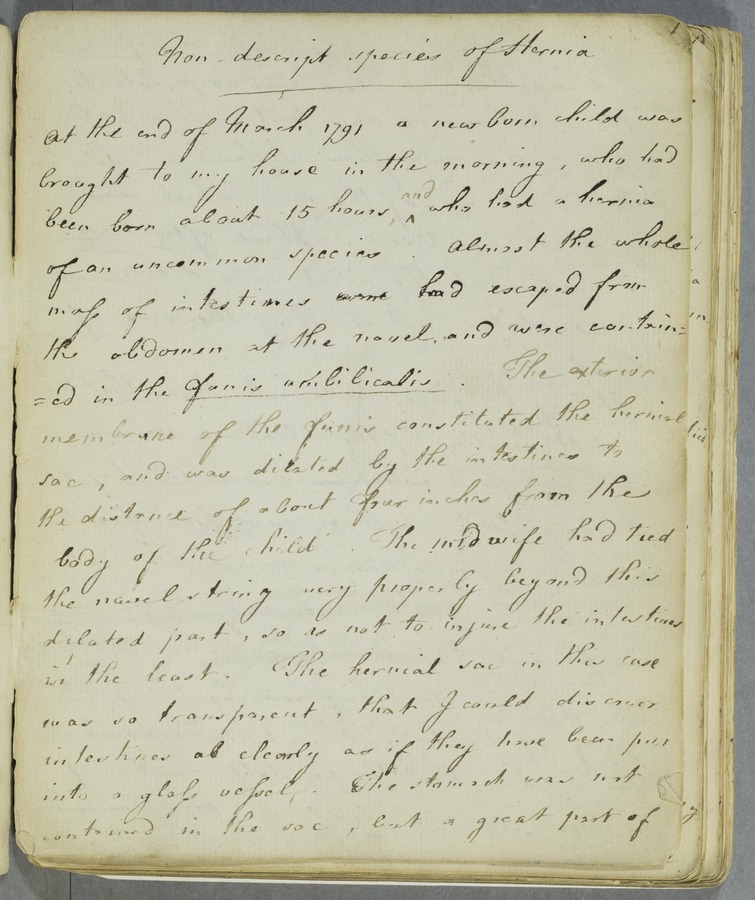 Non-descript species of Hernia
At the end of March 1791 a new born child was
brought to my house in the morning, who had
been born about 15 hours, and who had a hernia
of an uncommon species. Almost the whole
mass of intestines were had escaped from
the abdomen at the navel, and were contain=
=ed in the funis umbilicalis. The exterior
membrane of the funis constituted the hernial
sac, and was dilated by the intestines to
the distance of about four inches from the
body of the child. The midwife had tied
the navel string very properly beyond this
dilated part, so as not to injure the intestines
in the least. The hernial sac in this case
was so transparent, that I could discover
intestines as clearly as if they have been put
into a glass vessel. The stomach was not
contained in the sac, but a great part of